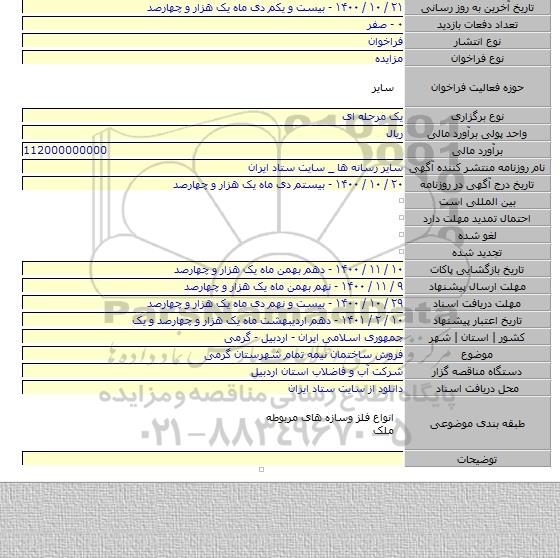 تاریخ آخرین به روز رسانی ۲۱ / ۱۰ / ۱۴۰۰ - بیست و یکم دی ماه یک هزار و چهارصد
تعداد دفعات بازدید ۰ - صفر
نوع انتشار فراخوان
نوع فراخوان مزایده
حوزه فعالیت فراخوان سایر
نوع برگزاری یک مرحله ای
واحد پولی برآورد مالی ریال
برآورد مالی 112000000000
نام روزنامه منتشر کننده آگهی سایر رسانه ها _ سایت ستاد ایران
تاریخ درج آگهی در روزنامه ۲۰ / ۱۰ / ۱۴۰۰ - بیستم دی ماه یک هزار و چهارصد
بین المللی است
احتمال تمدید مهلت دارد
لغو شده
تجدید شده
تاریخ بازگشایی پاکات ۱۰ / ۱۱ / ۱۴۰۰ - دهم بهمن ماه یک هزار و چهارصد
مهلت ارسال پیشنهاد ۹ / ۱۱ / ۱۴۰۰ - نهم بهمن ماه یک هزار و چهارصد
مهلت دریافت اسناد ۲۹ / ۱۰ / ۱۴۰۰ - بیست و نهم دی ماه یک هزار و چهارصد
تاریخ اعتبار پیشنهاد ۱۰ / ۲ / ۱۴۰۱ - دهم اردیبهشت ماه یک هزار و چهارصد و یک
کشور | استان | شهر جمهوری اسلامی ایران - اردبیل - گرمی
موضوع فروش ساختمان نیمه تمام شهرستان گرمی
دستگاه مناقصه گزار شرکت آب و فاضلاب استان اردبیل
محل دریافت اسناد دانلود از سایت ستاد ایران
طبقه بندی موضوعی انواع فلز وسازه های مربوطه
ملک
توضیحات
ParsNamadData
پایگاه اطلاع رسانی مناقصه و مزایده
۰۲۱-۸۸۳۴۹۶۷۰-۵